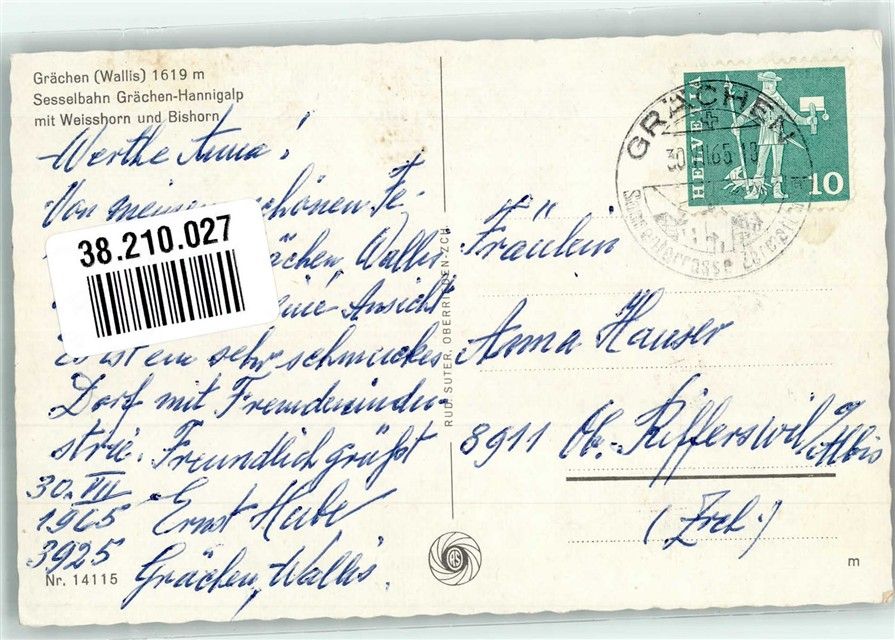 Grächen (Wallis) 1619 m
Sesselbahn Grächen-Hannigalp
mit Weisshorn und Bishorn
Werthe Anna!
Von meinen schönen Fe-
ächen, Wallis
eine Ansicht
Es ist ein sehr schmuckes
Dorf mit Fremdenindu-
strie. Freundlich grüßt
30. VII
1965 Ernst Hube
3925
Grächen, Wallis.
Nr. 14115
38.210.027
RUD. SUTER, OBERRIEDEN-ZCH.
HELVETIA
10
GRÄCHEN
Sonnenterrasse
Fräulein
Anna Hauser
8911 Ob.-Rifferswil a/Albis
(Zrch.)
RS
m